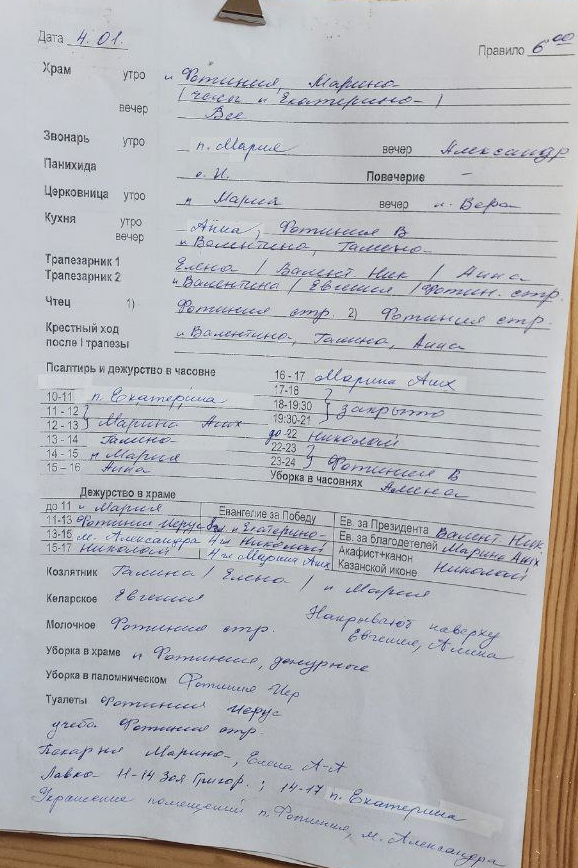 Дата 4.01. Правило 6 00
Храм утро и Фотиния, Марина
/ чтец и Екатерина /
вечер Все
Звонарь утро п. Мария вечер Александр
Панихида о. И. Повечерие –
Церковница утро и Мария вечер и. Вера
Кухня утро Анна, Фотиния В
вечер и Валентина, Галина
Трапезарник 1 Елена / Валент Ник / Анна
Трапезарник 2 и Валентина / Евгения / Фотин. стр.
Чтец 1) Фотиния стр. 2) Фотиния стр.
Крестный ход
после I трапезы и Валентина, Галина, Анна
Псалтирь и дежурство в часовне
16 - 17 Марина Аих
10-11 п. Екатерина 17-18 }
11 - 12 } 18-19:30 } закрыто
12 - 13 } Марина Аих 19:30-21 }
13 - 14 Галина до 22 Николай
14 - 15 и Мария 22-23 }
15 – 16 Анна 23-24 } Фотиния В
Уборка в часовнях Алина
Дежурство в храме
до 11 и Мария Евангелие за Победу Ев. за Президента Валент Ник
11-13 Фотиния Иерус и Екатерина Ев. за благодетелей Марина Аих
13-15 м. Александра 4 ч Николай Акафист+канон
15-17 Николай 4 ч Марина Аих Казанской иконе Николай
Козлятник Галина / Елена / и Мария
Келарское Евгения Накрывают наверху
Молочное Фотиния стр. Евгения, Алина
Уборка в храме и Фотиния, дежурные
Уборка в паломническом Фотиния Иер
Туалеты Фотиния Иерус
учеба Фотиния стр.
Пекарня Марина, Елена А-А
Лавка 11-14 Зоя Григор.; 14-17 п. Екатерина
Украшение помещений п. Фотиния, м. Александра